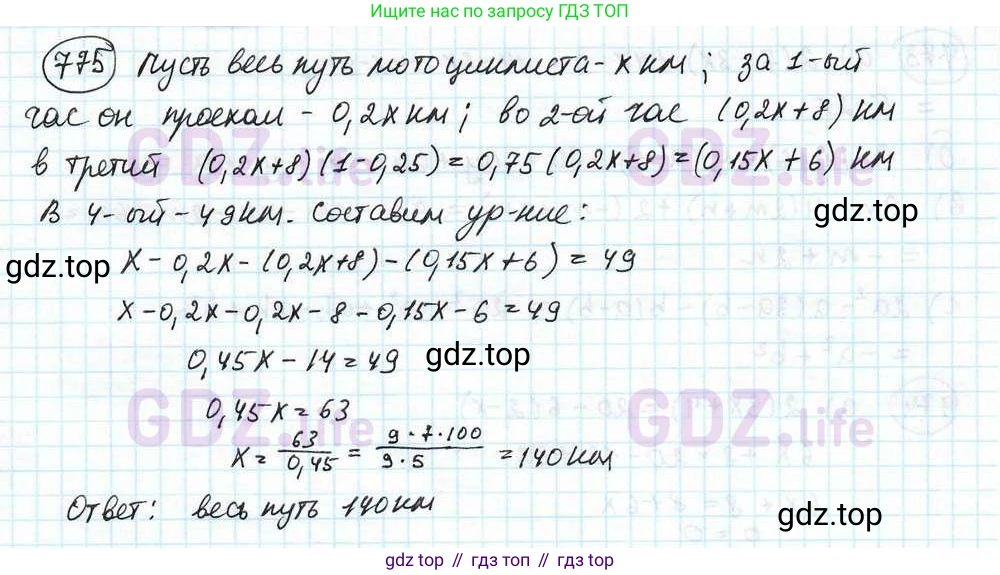 Ищите ответ по запросу ГДЗ ТОП
775 Пусть весь путь мотоциклиста - x км; за 1-ый
час он проехал - 0,2x км; во 2-ой час (0,2x+8) км
в третий (0,2x+8)(1-0,25) = 0,75(0,2x+8) = (0,15x + 6) км
В 4-ый - 49км. Составим ур-ние:
gdz.top
gdz.top
x - 0,2x - (0,2x+8) - (0,15x+6) = 49
x - 0,2x - 0,2x - 8 - 0,15x - 6 = 49
0,45x - 14 = 49
gdz.top
0,45x = 63
x = 63/0,45 = 9·7·100/9·5 = 140км
Ответ: весь путь 140км
gdz.top
GDZ.life
GDZ.life
GDZ.life
GDZ.life
gdz.top // гдз топ // gdz.top